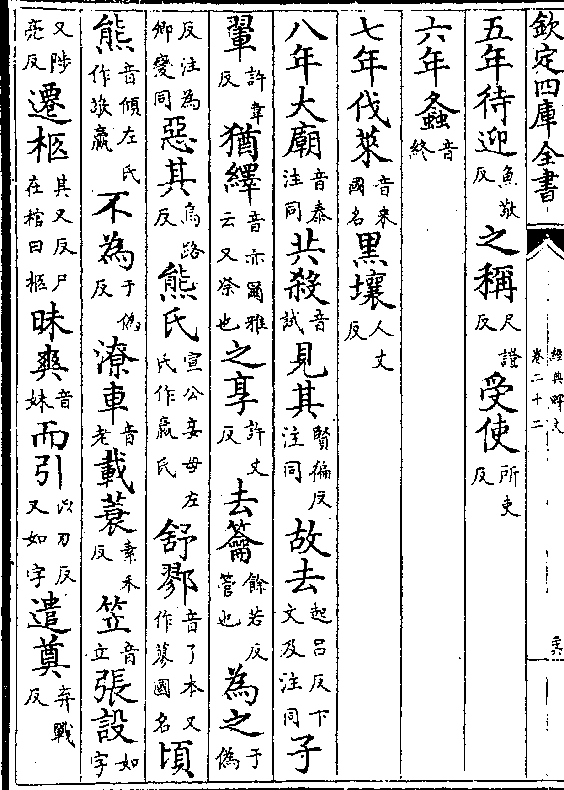 欽定四庫全書
經典釋文
卷二十二
五年待迎魚敬反之稱尺證反受使所吏反
六年螽音終
七年伐萊音來國名黑壤人丈反
八年大廟音泰注同共殺音試見其賢徧反注同故去起呂反下文及注同子
翬許韋反猶繹音亦爾雅云又祭也之享許丈反去籥餘若反管也為之于偽
反注為卿變同惡其烏路反熊氏宣公妾母左氏作嬴氏舒鄝音了本又作蓼國名頃
熊音傾左氏作敬嬴不為于偽反潦車音老載蓑素禾反笠音立張設如字
又陟亮反遷柩其又反尸在棺曰柩昧爽音妹而引以刃反又如字遣奠弃戰反